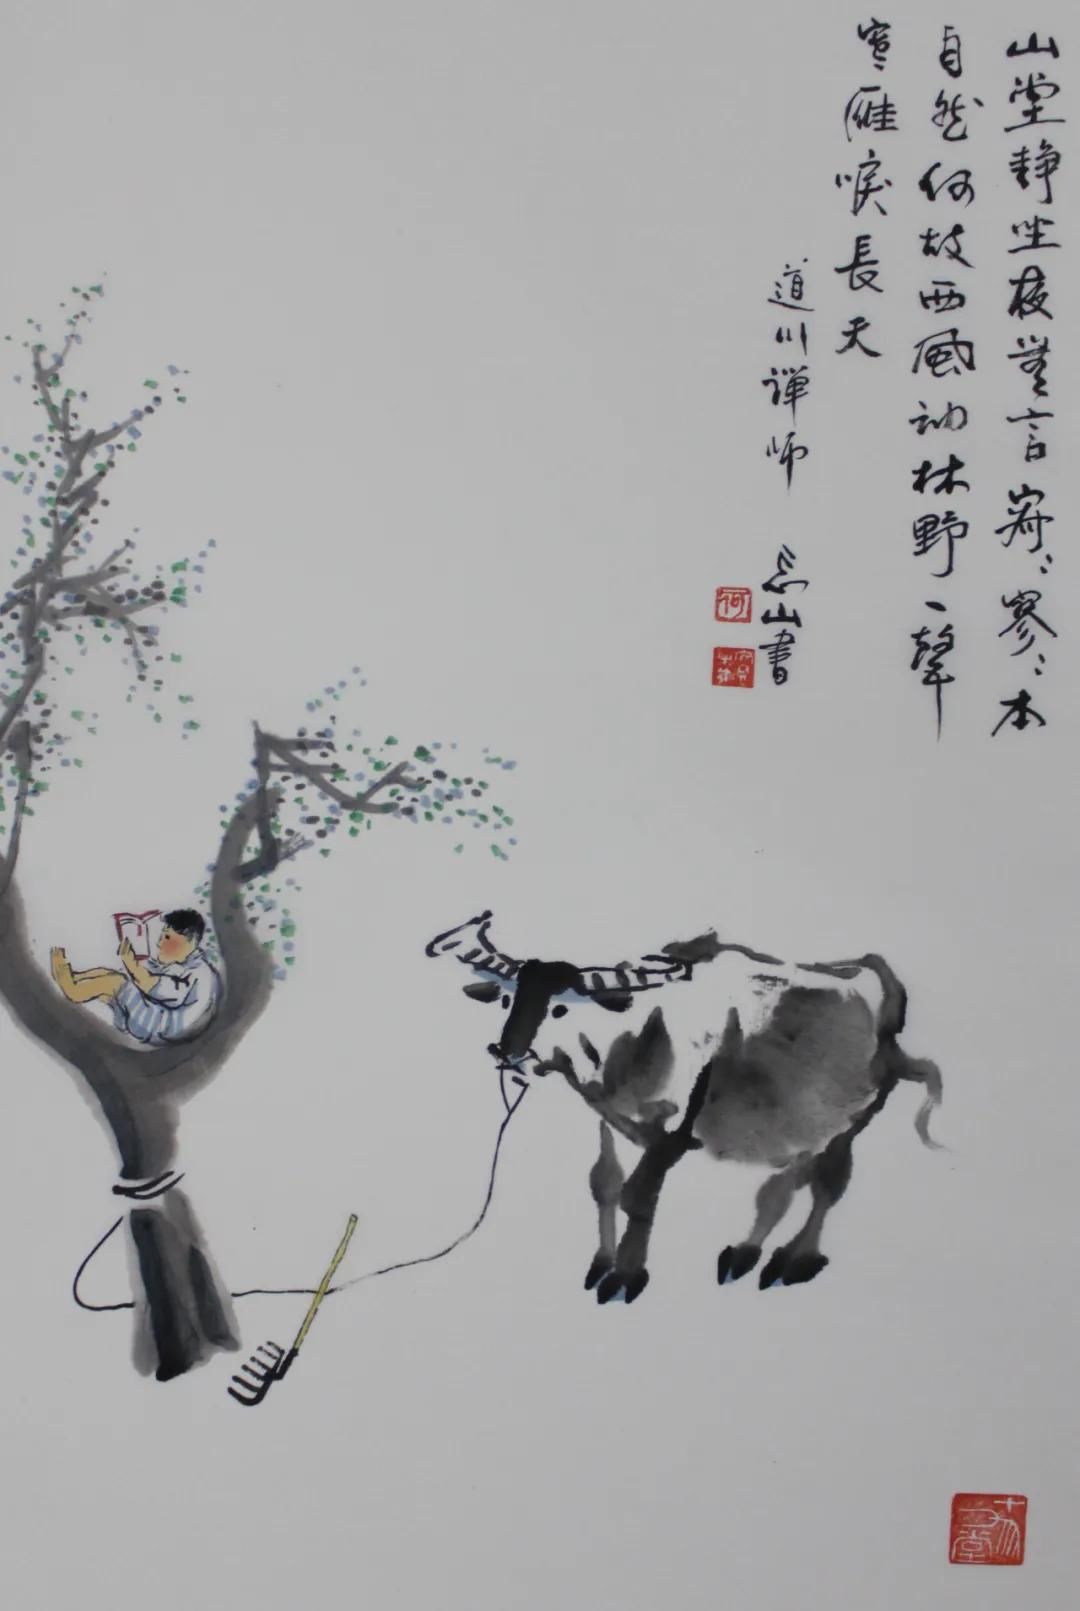 山堂静坐夜無言寂〻寥〻本
自然何故西風动林野一聲
寒雁唳長天
道川禅师 忘山書
何